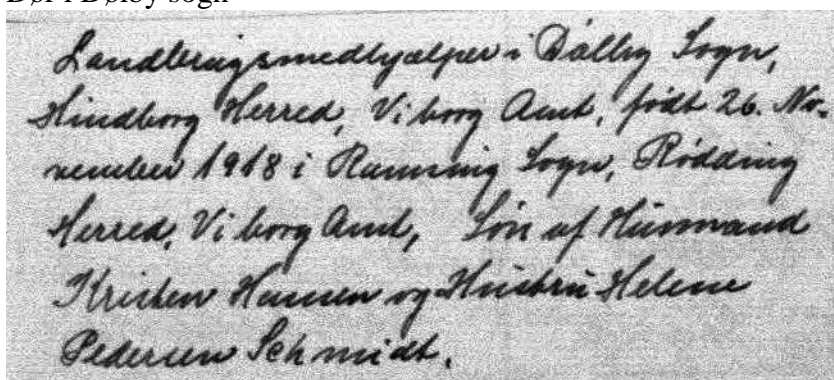 Bor i Dølby sogn
Landbrugsmedhjælper i Dølby Sogn,
Hindborg Herred, Viborg Amt, født 26. No-
vember 1918 i Ramsing Sogn, Rødding
Herred, Viborg Amt, Søn af Husmand
Kristen Hansen og Hustru Helene
Pedersen Schmidt.